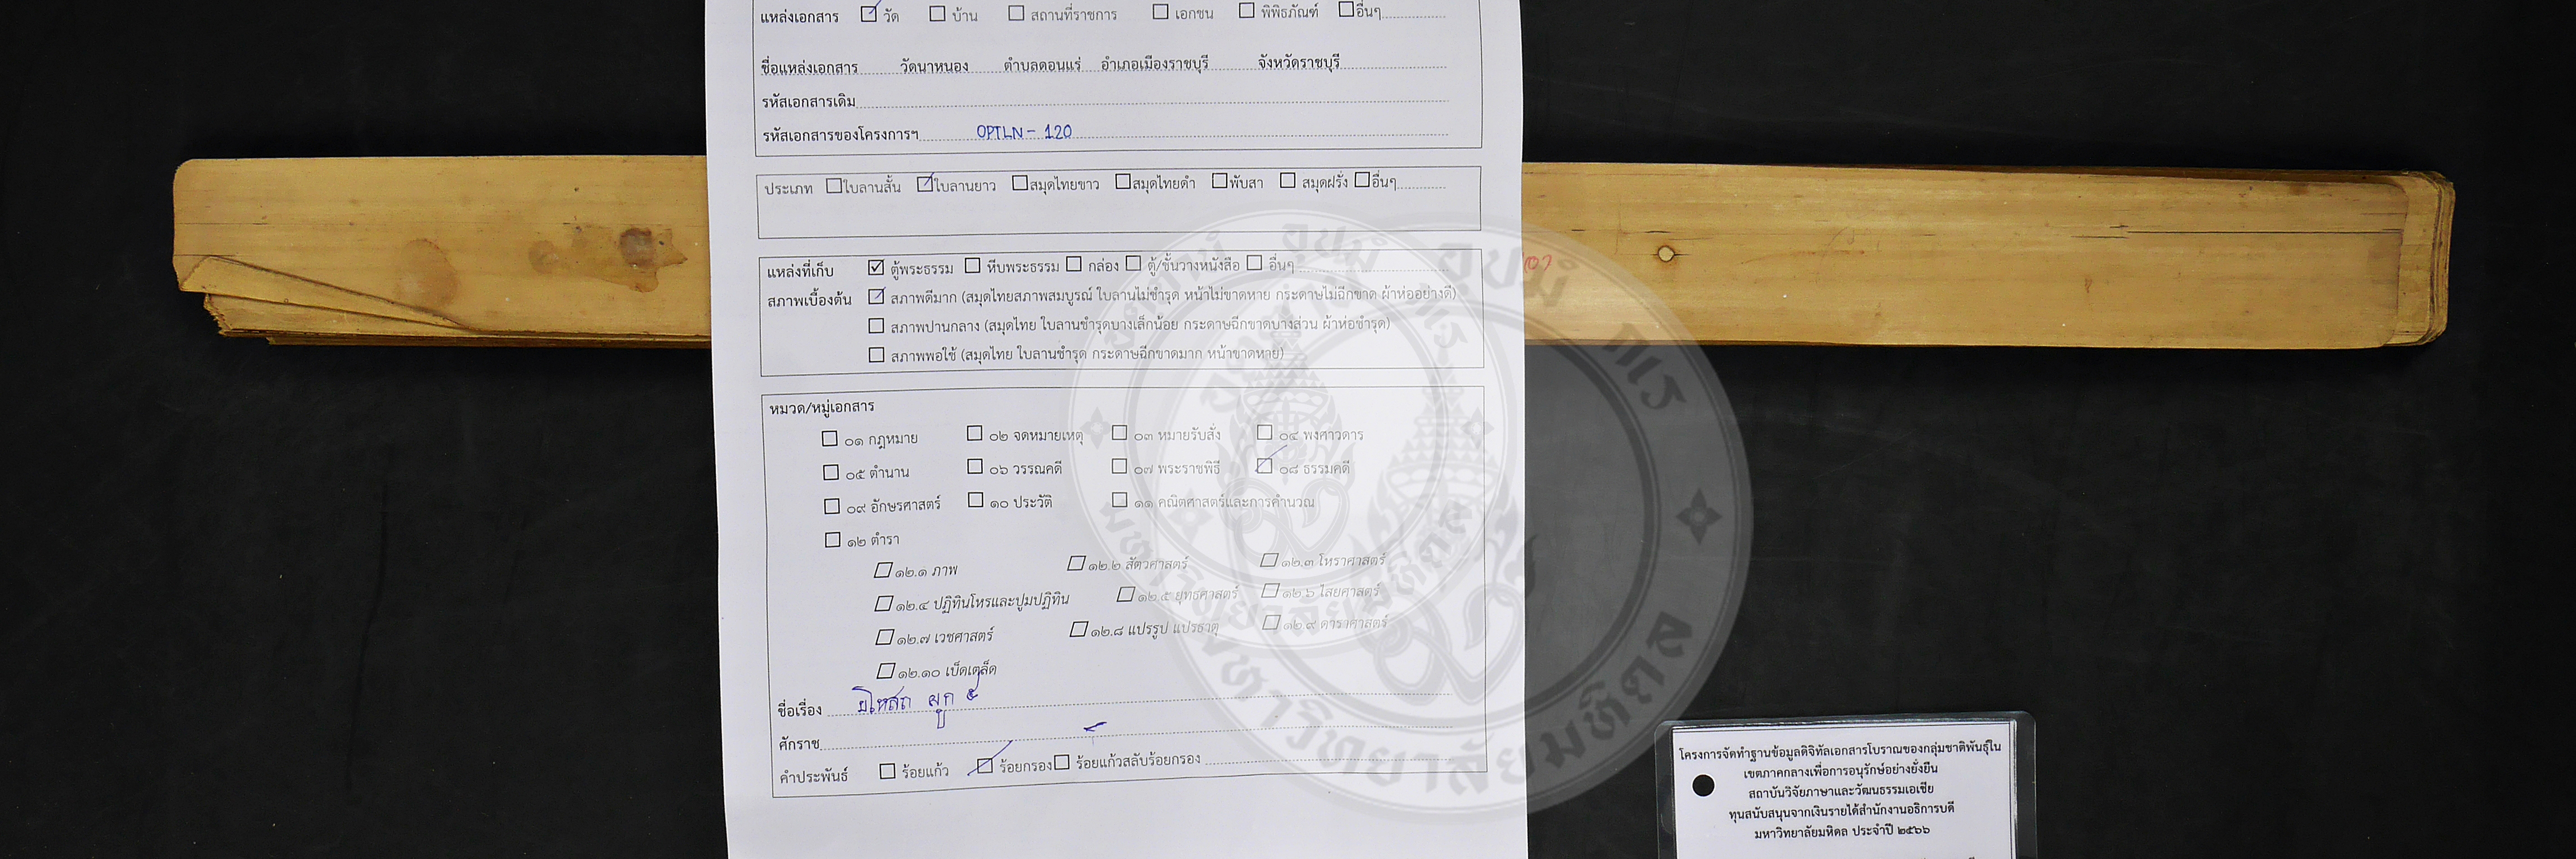 แหล่งเอกสาร ☑ วัด ☐ บ้าน ☐ สถานที่ราชการ ☐ เอกชน ☐ พิพิธภัณฑ์ ☐ อื่นๆ
ชื่อแหล่งเอกสาร วัดนาหนอง ตำบลดอนแร่ อำเภอเมืองราชบุรี จังหวัดราชบุรี
รหัสเอกสารเดิม
รหัสเอกสารของโครงการฯ OPTLN - 120
ประเภท ☐ ใบลานสั้น ☑ ใบลานยาว ☐ สมุดไทยขาว ☐ สมุดไทยดำ ☐ พับสา ☐ สมุดฝรั่ง ☐ อื่นๆ
แหล่งที่เก็บ ☑ ตู้พระธรรม ☐ หีบพระธรรม ☐ กล่อง ☐ ตู้/ชั้นวางหนังสือ ☐ อื่นๆ
สภาพเบื้องต้น ☑ สภาพดีมาก (สมุดไทยสภาพสมบูรณ์ ใบลานไม่ชำรุด หน้าไม่ขาดหาย กระดาษไม่ฉีกขาด ผ้าห่ออย่างดี)
☐ สภาพปานกลาง (สมุดไทย ใบลานชำรุดบางเล็กน้อย กระดาษฉีกขาดบางส่วน ผ้าห่อชำรุด)
☐ สภาพพอใช้ (สมุดไทย ใบลานชำรุด กระดาษฉีกขาดมาก หน้าขาดหาย)
หมวด/หมู่เอกสาร
☐ ๐๑ กฎหมาย ☐ ๐๒ จดหมายเหตุ ☐ ๐๓ หมายรับสั่ง ☐ ๐๔ พงศาวดาร
☐ ๐๕ ตำนาน ☐ ๐๖ วรรณคดี ☐ ๐๗ พระราชพิธี ☑ ๐๘ ธรรมคดี
☐ ๐๙ อักษรศาสตร์ ☐ ๑๐ ประวัติ ☐ ๑๑ คณิตศาสตร์และการคำนวณ
☐ ๑๒ ตำรา
☐ ๑๒.๑ ภาพ ☐ ๑๒.๒ สัตวศาสตร์ ☐ ๑๒.๓ โหราศาสตร์
☐ ๑๒.๔ ปฏิทินโหรและปูมปฏิทิน ☐ ๑๒.๕ ยุทธศาสตร์ ☐ ๑๒.๖ ไสยศาสตร์
☐ ๑๒.๗ เวชศาสตร์ ☐ ๑๒.๘ แปรรูป แปรธาตุ ☐ ๑๒.๙ ดาราศาสตร์
☐ ๑๒.๑๐ เบ็ดเตล็ด
ชื่อเรื่อง ผูก ๕
ศักราช
คำประพันธ์ ☐ ร้อยแก้ว ☑ ร้อยกรอง ☐ ร้อยแก้วสลับร้อยกรอง
มหาวิทยาลัยมหิดล
โครงการจัดทำฐานข้อมูลดิจิทัลเอกสารโบราณของกลุ่มชาติพันธุ์ใน
เขตภาคกลางเพื่อการอนุรักษ์อย่างยั่งยืน
สถาบันวิจัยภาษาและวัฒนธรรมเอเชีย
ทุนสนับสนุนจากเงินรายได้สำนักงานอธิการบดี
มหาวิทยาลัยมหิดล ประจำปี ๒๕๖๖